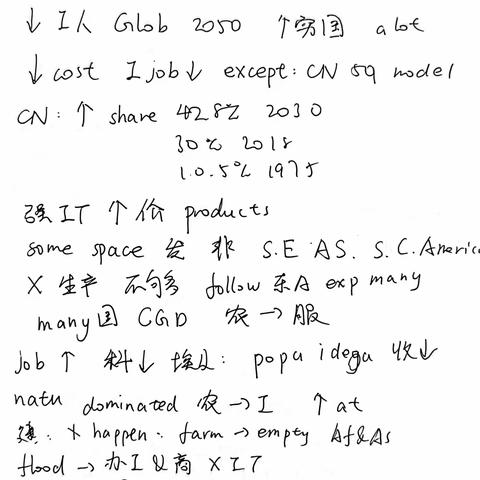 ↓ I人 Glob 2050 ↑穷国 a lot
↓ cost I job↓ except: CN 59 model
CN: ↑ share 42.8% 2030
30% 2018
1.0.5% 1975
强IT ↑ 价 products
some space 发 非 S.E AS. S.C.America
X 生产 不够 follow 东A exp many
many国 CGD 农→服
job ↑ 科↓ 埃及: popu 收↓
natu dominated 农→I ↑ at
X happen. farm → empty Af&As
flood → 办工以商 X I